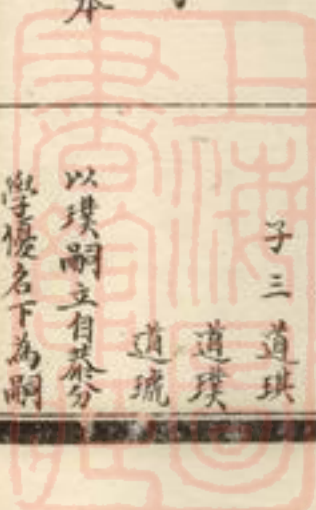 子三 道琪
道璞
道琥
以璞嗣立自發分
學優名下為嗣
本